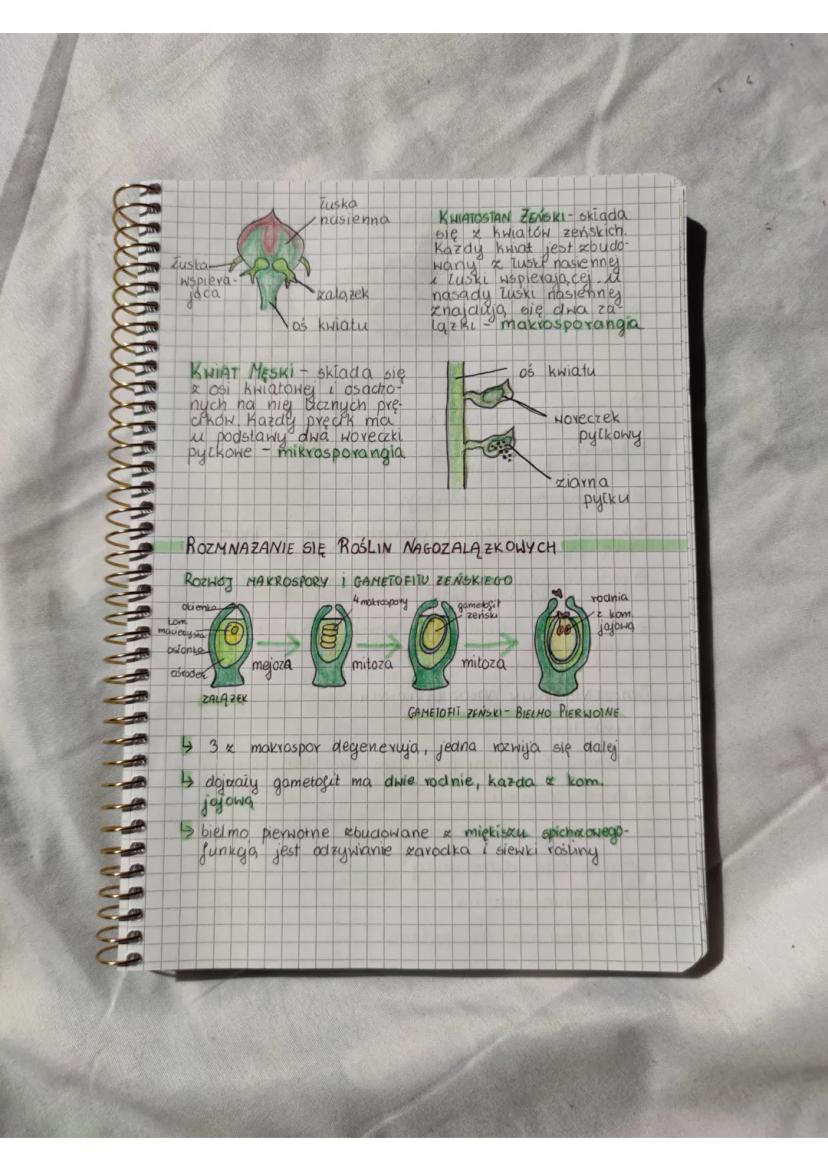 łuska
nasienna
łuska
wspiera-
jąca
zalążek
oś kwiatu
KWIATOSTAN ŻEŃSKI - składa
się z kwiatów żeńskich.
Każdy kwiat jest zbudo-
wany z łuski nasiennej
i łuski wspierającej. U
nasady łuski nasiennej
znajdują się dwa za-
lążki - makrosporangia
KWIAT MĘSKI - składa się
z osi kwiatowej i osadzo-
nych na niej licznych prę-
cików. Każdy pręcik ma
u podstawy dwa woreczki
pyłkowe - mikrosporangia
oś kwiatu
woreczek
pyłkowy
ziarna
pyłku
ROZMNAŻANIE SIĘ ROŚLIN NAGOZALĄŻKOWYCH
ROZWÓJ MAKROSPORY I GAMETOFITU ŻEŃSKIEGO
okienko
kom.
macierzysta
osłonka
ośrodek
ZALĄŻEK
mejoza
4 makrospory
mitoza
gametofit
żeński
mitoza
rodnia
z kom.
jajową
GAMETOFIT ŻEŃSKI - BIELMO PIERWOTNE
↳ 3 z makrospor degenerują, jedna rozwija się dalej
↳ dojrzały gametofit ma dwie rodnie, każda z kom.
jajową
↳ bielmo pierwotne zbudowane z miękiszu spichrzowego-
funkcją jest odżywianie zarodka i siewki rośliny